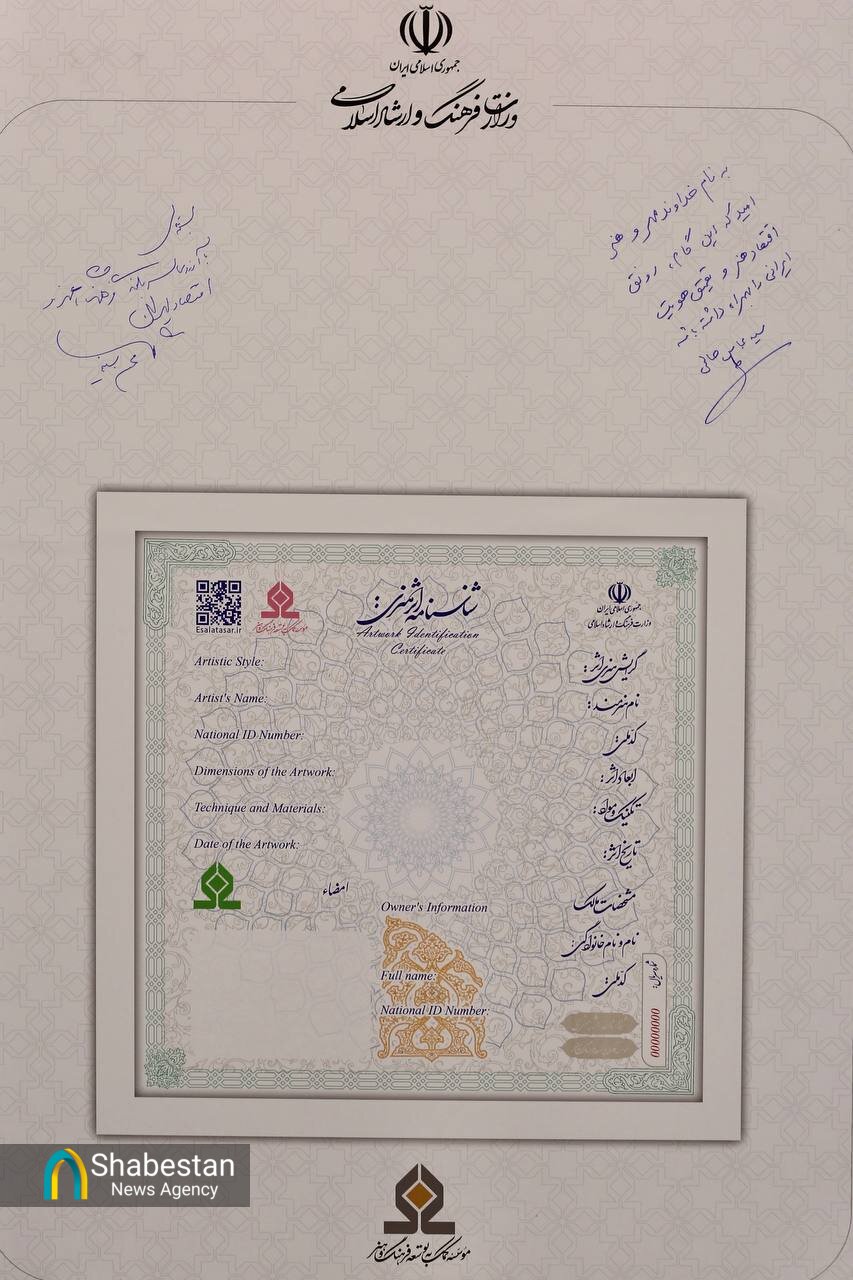 جمهوری اسلامی ایران
وزارت فرهنگ و ارشاد اسلامی
به نام خداوند مهر و هنر
امید که این گام، رونق
اقتصاد هنر و تعمیق هویت
ایرانی را بهمراه داشته باشد
سید عباس صالحی
اقتصاد ایران
جمهوری اسلامی ایران
وزارت فرهنگ و ارشاد اسلامی
شناسنامه اثر هنری
Artwork Identification
Certificate
Esalatasar.ir
موسسه کمک به توسعه فرهنگ و هنر
Artistic Style:
گرایش هنری اثر:
Artist's Name:
نام هنرمند:
National ID Number:
کد ملی:
Dimensions of the Artwork:
ابعاد اثر:
Technique and Materials:
تکنیک و مواد:
Date of the Artwork:
تاریخ اثر:
امضاء
Owner's Information
مشخصات مالک
نام و نام خانوادگی:
Full name:
کد ملی:
National ID Number:
شماره سریال:
00000000
Shabestan
News Agency
موسسه کمک به توسعه فرهنگ و هنر